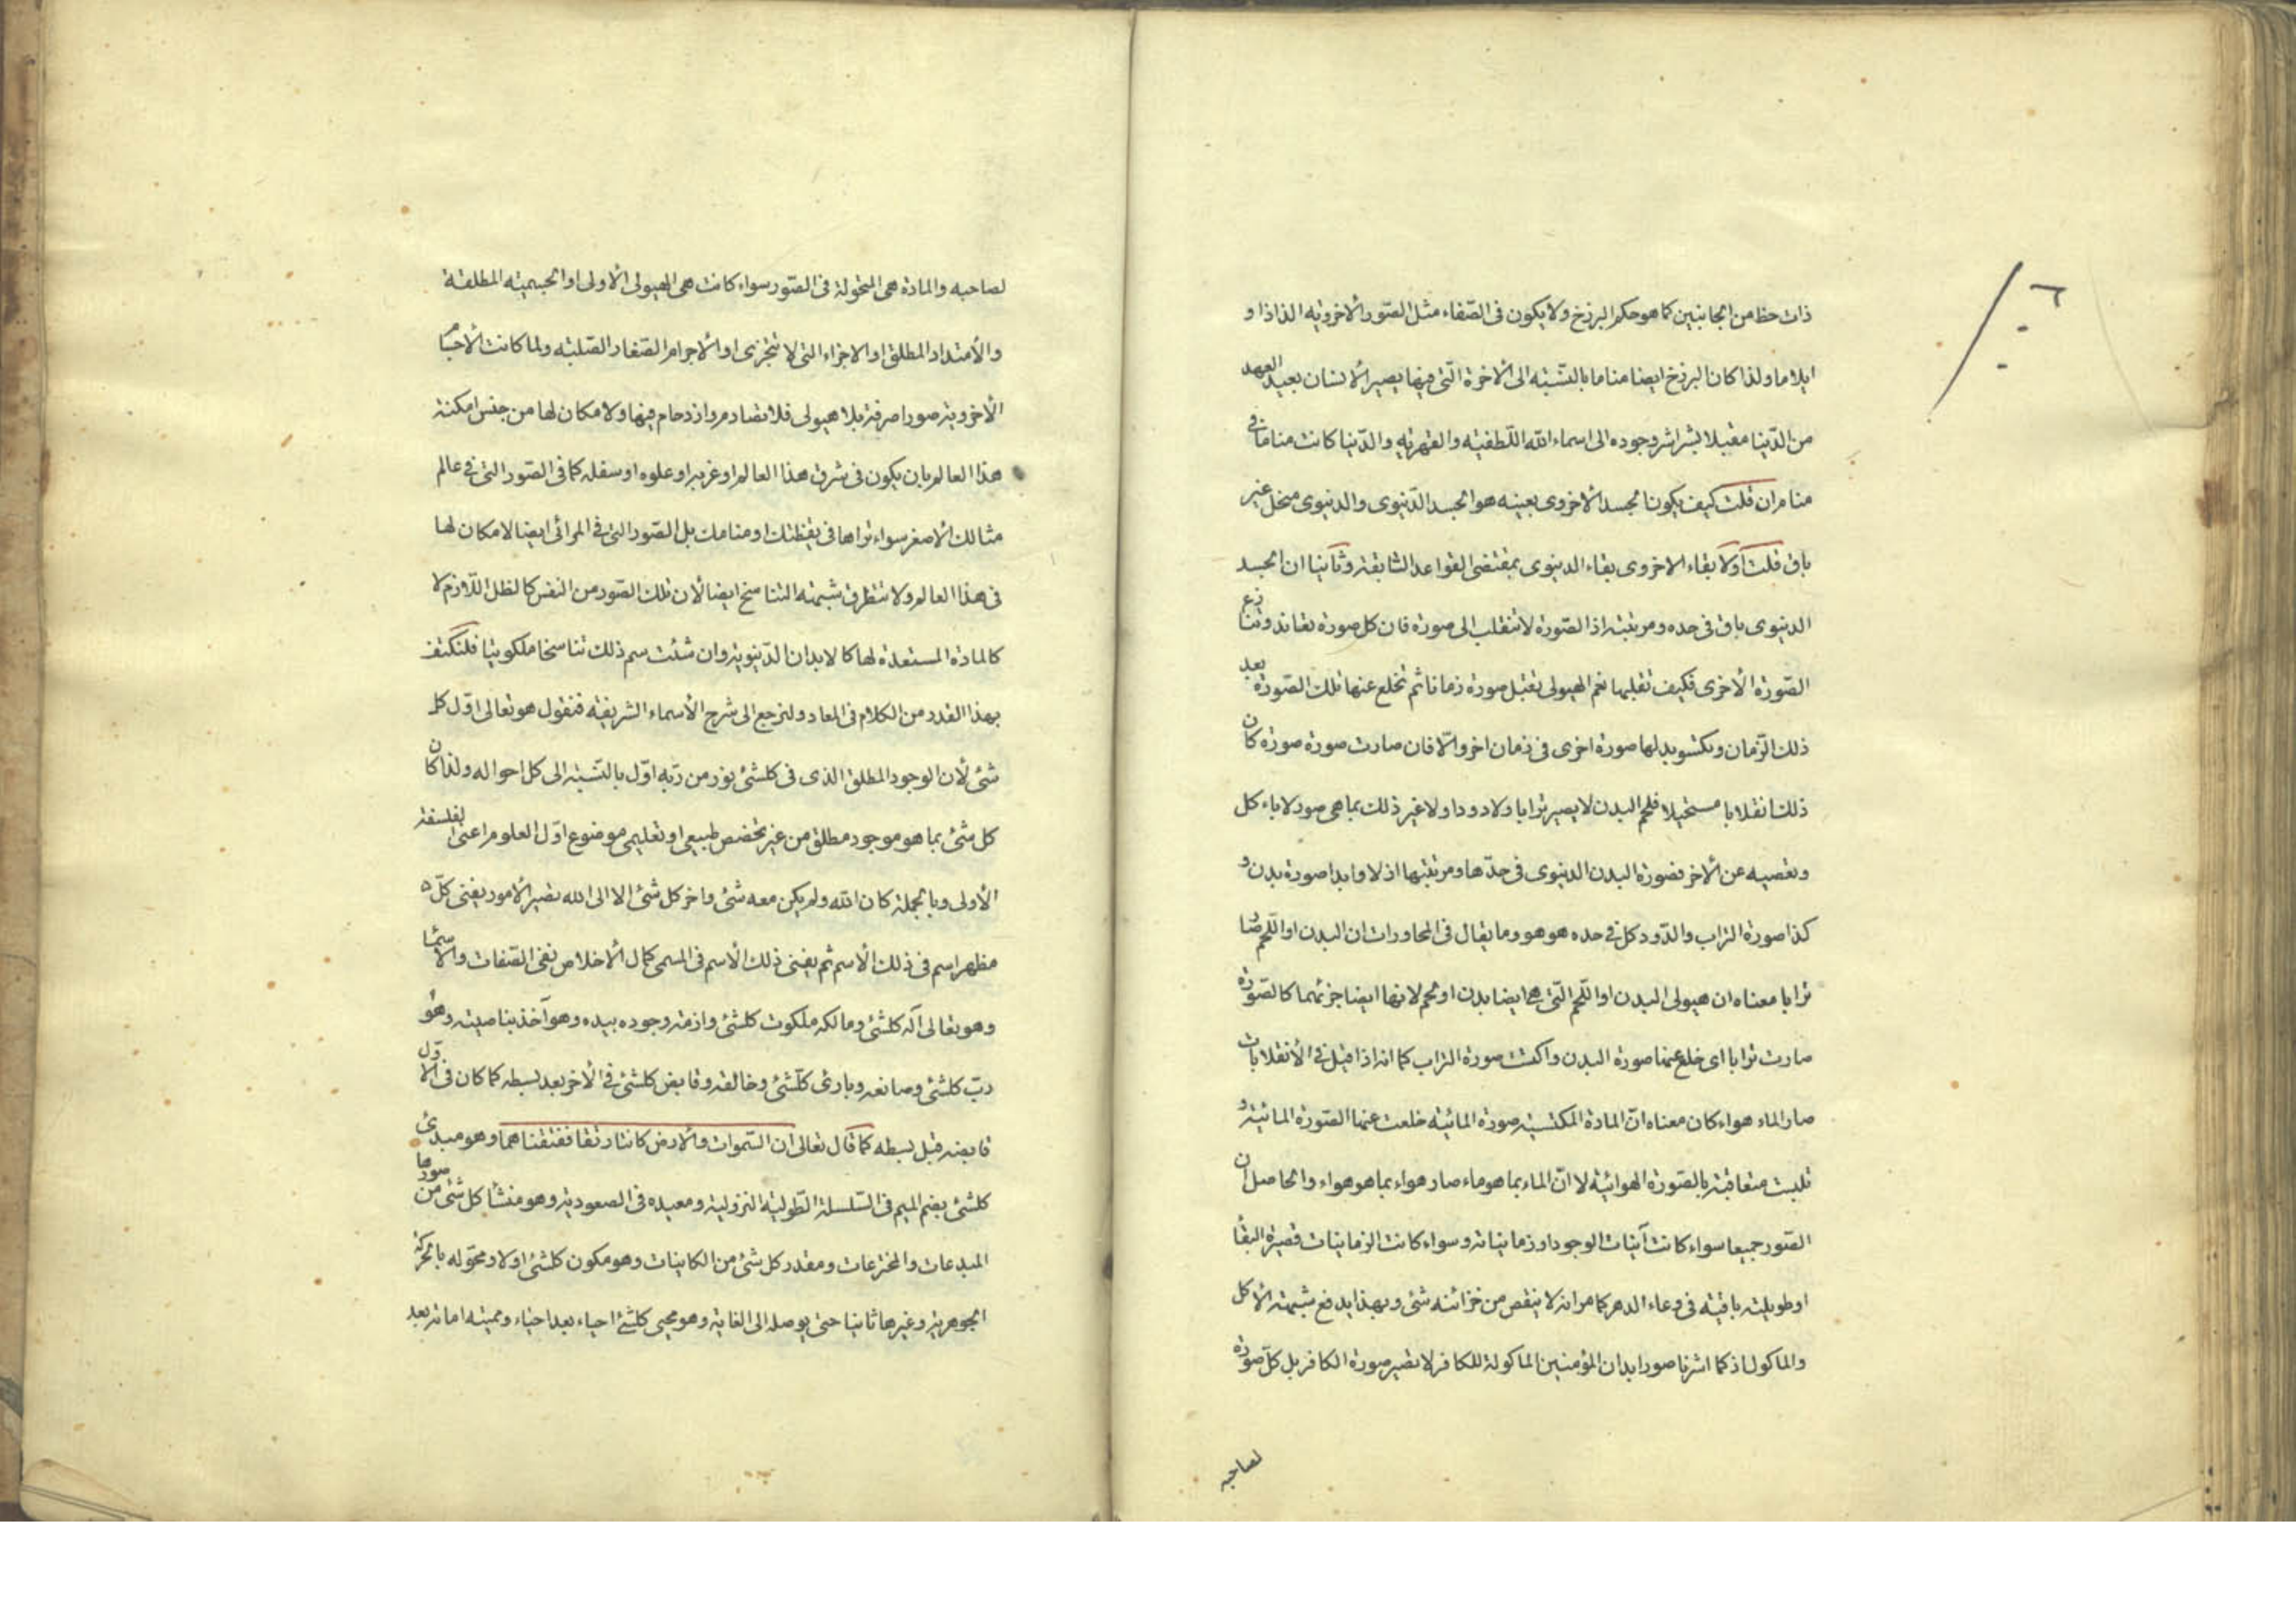 ذات حظ من الجانبين كما هو حكم البرزخ ولا يكون فى الصّفاء مثل الصّور الأخرويه الذاذا و
ايلاما ولذا كان البرزخ ايضا مناما بالنّسبته الى الأخرة الّتى فيها يصير الأنسان بعيد العهد
من الدّنيا مقبلا بشراشر وجوده الى اسماء الله اللّطفيته والقهريّه والدّنيا كانت مناما فى
منام ان قلت كيف يكون الجسد الأخروى بعينه هو الجسد الدّنيوى والدنيوى منحل غير
باق قلت اولا بقاء الاخروى بقاء الدينوى بمقتضى القواعد السّابقة وثانيا ان الجسد
الدنيوى باق فى حده ومرتبته اذ الصّورة لا تنقلب الى صورة فان كل صورة تعاند وتنازع
الصّورة الأخرى فكيف تقبلها نعم الهيولى تقبل صورة زمانا ثم تخلع عنها تلك الصّورة بعد
ذلك الزّمان ويكتسو بدلها صورة اخرى فى زمان اخر والّا فان صارت صورة صورة كان
ذلك انقلابا مستحيلا فلحم البدن لا يصير ترابا ولا دودا ولا غير ذلك بما هى صور لاباء كل
وتعصيه عن الأخر فصورة البدن الدنيوى فى حدّها ومرتبتها ازلا وابدا صورة بدن و
كذا صورة التراب والدّود كل فى حده هو هو وما يقال فى المحاورات ان البدن او اللّحم صار
ترابا معناه ان هيولى البدن او اللّحم الّتى هى ايضا بدن او لحم لانها ايضا جزئهما كالصّورة
صارت ترابا اى خلع عنها صورة البدن واكتست صورة التراب كما انه اذا قيل فى الأنقلابات
صار الماء هواء كان معناه انّ المادة المكتسيته صورة المائيّه خلعت عنها الصّورة المائيّة و
تلبست متعاقبة بالصّورة الهوائيّه لا انّ الماء بما هو ماء صار هواء بما هو هواء والحاصل ان
الصّور جميعا سواء كانت آنيات الوجود او زمانيات وسواء كانت الزمانيات قصيرة البقا
او طويلته باقيته فى وعاء الدهر كما مر انه لا ينقص من خزائنه شئ وبهذا يدفع شبهته الأكل
والماكول اذ كما اشرنا صور ابدان المؤمنين الماكولة للكافر لا تصير صورة الكافر بل كلّ صورة
لصاحبه
لصاحبه والمادة هى المتحولة فى الصّور سواء كانت هى الهيولى الأولى او الجسميته المطلقة
والأمتداد المطلق او الاجزاء التى لا تتجزى او الأجرام الصّغار الصّلبته ولما كانت الأجسام
الأخروية صورا صرفة بلا هيولى فلا تصادم وازدحام فيها ولا مكان لها من جنس امكنة
هذا العالم بان يكون فى شرق هذا العالم او غربه او علوه او سفله كما فى الصّور التى فى عالم
مثالك الأصغر سواء تراها فى يقظتك او منامك بل الصّور التى فى المرائى ايضا لا مكان لها
فى هذا العالم ولا تتطرق شبهته التناسخ ايضا لأن تلك الصّور من النفس كالظل اللّازم لا
كالمادة المستعدة لها كالابدان الدّنيوية وان شئت سم ذلك تناسخا ملكوتيا فلنكتف
بهذا القدر من الكلام فى المعاد ولنرجع الى شرح الأسماء الشريفته فنقول هو تعالى اوّل كل
شئ لأن الوجود المطلق الذى فى كلشئ نور من ربّه اوّل بالنّسبته الى كل احواله ولذا كان
كل شئ بما هو موجود مطلق من غير تخصص طبيعى او تعليمى موضوع اوّل العلوم اعنى الفلسفة
الأولى وبالجملة كان الله ولم يكن معه شئ واخر كل شئ الا الى الله تصير الأمور يفنى كلّ
مظهر اسم فى ذلك الأسم ثم يفنى ذلك الأسم فى المسمى كمال الأخلاص نفى الصّفات والأسمآء
وهو تعالى آله كلشئ ومالكه ملكوت كلشئ وازمة وجوده بيده وهو آخذ بناصيته وهو
ربّ كلشئ وصانعه وبارئ كلّشئ وخالقه وقابض كلشئ فى الأخر بعد بسطه كما كان فى الأوّل
قابضه قبل بسطه كما قال تعالى ان السّموات والأرض كانتا رتقا ففتقناهما وهو مبدئ
كلشئ بضم الميم فى السّلسلة الطّوليته النزولية ومعيده فى الصعودية وهو منشأ كل شئ من صورها
المبدعات والمخترعات ومقدر كل شئ من الكاينات وهو مكون كلشئ اولا ومحوّله بالحركة
الجوهرية وغيرها ثانيا حتى يوصله الى الغاية وهو محيى كلشئ احياء بعد احياء ومميته اماتة بعد